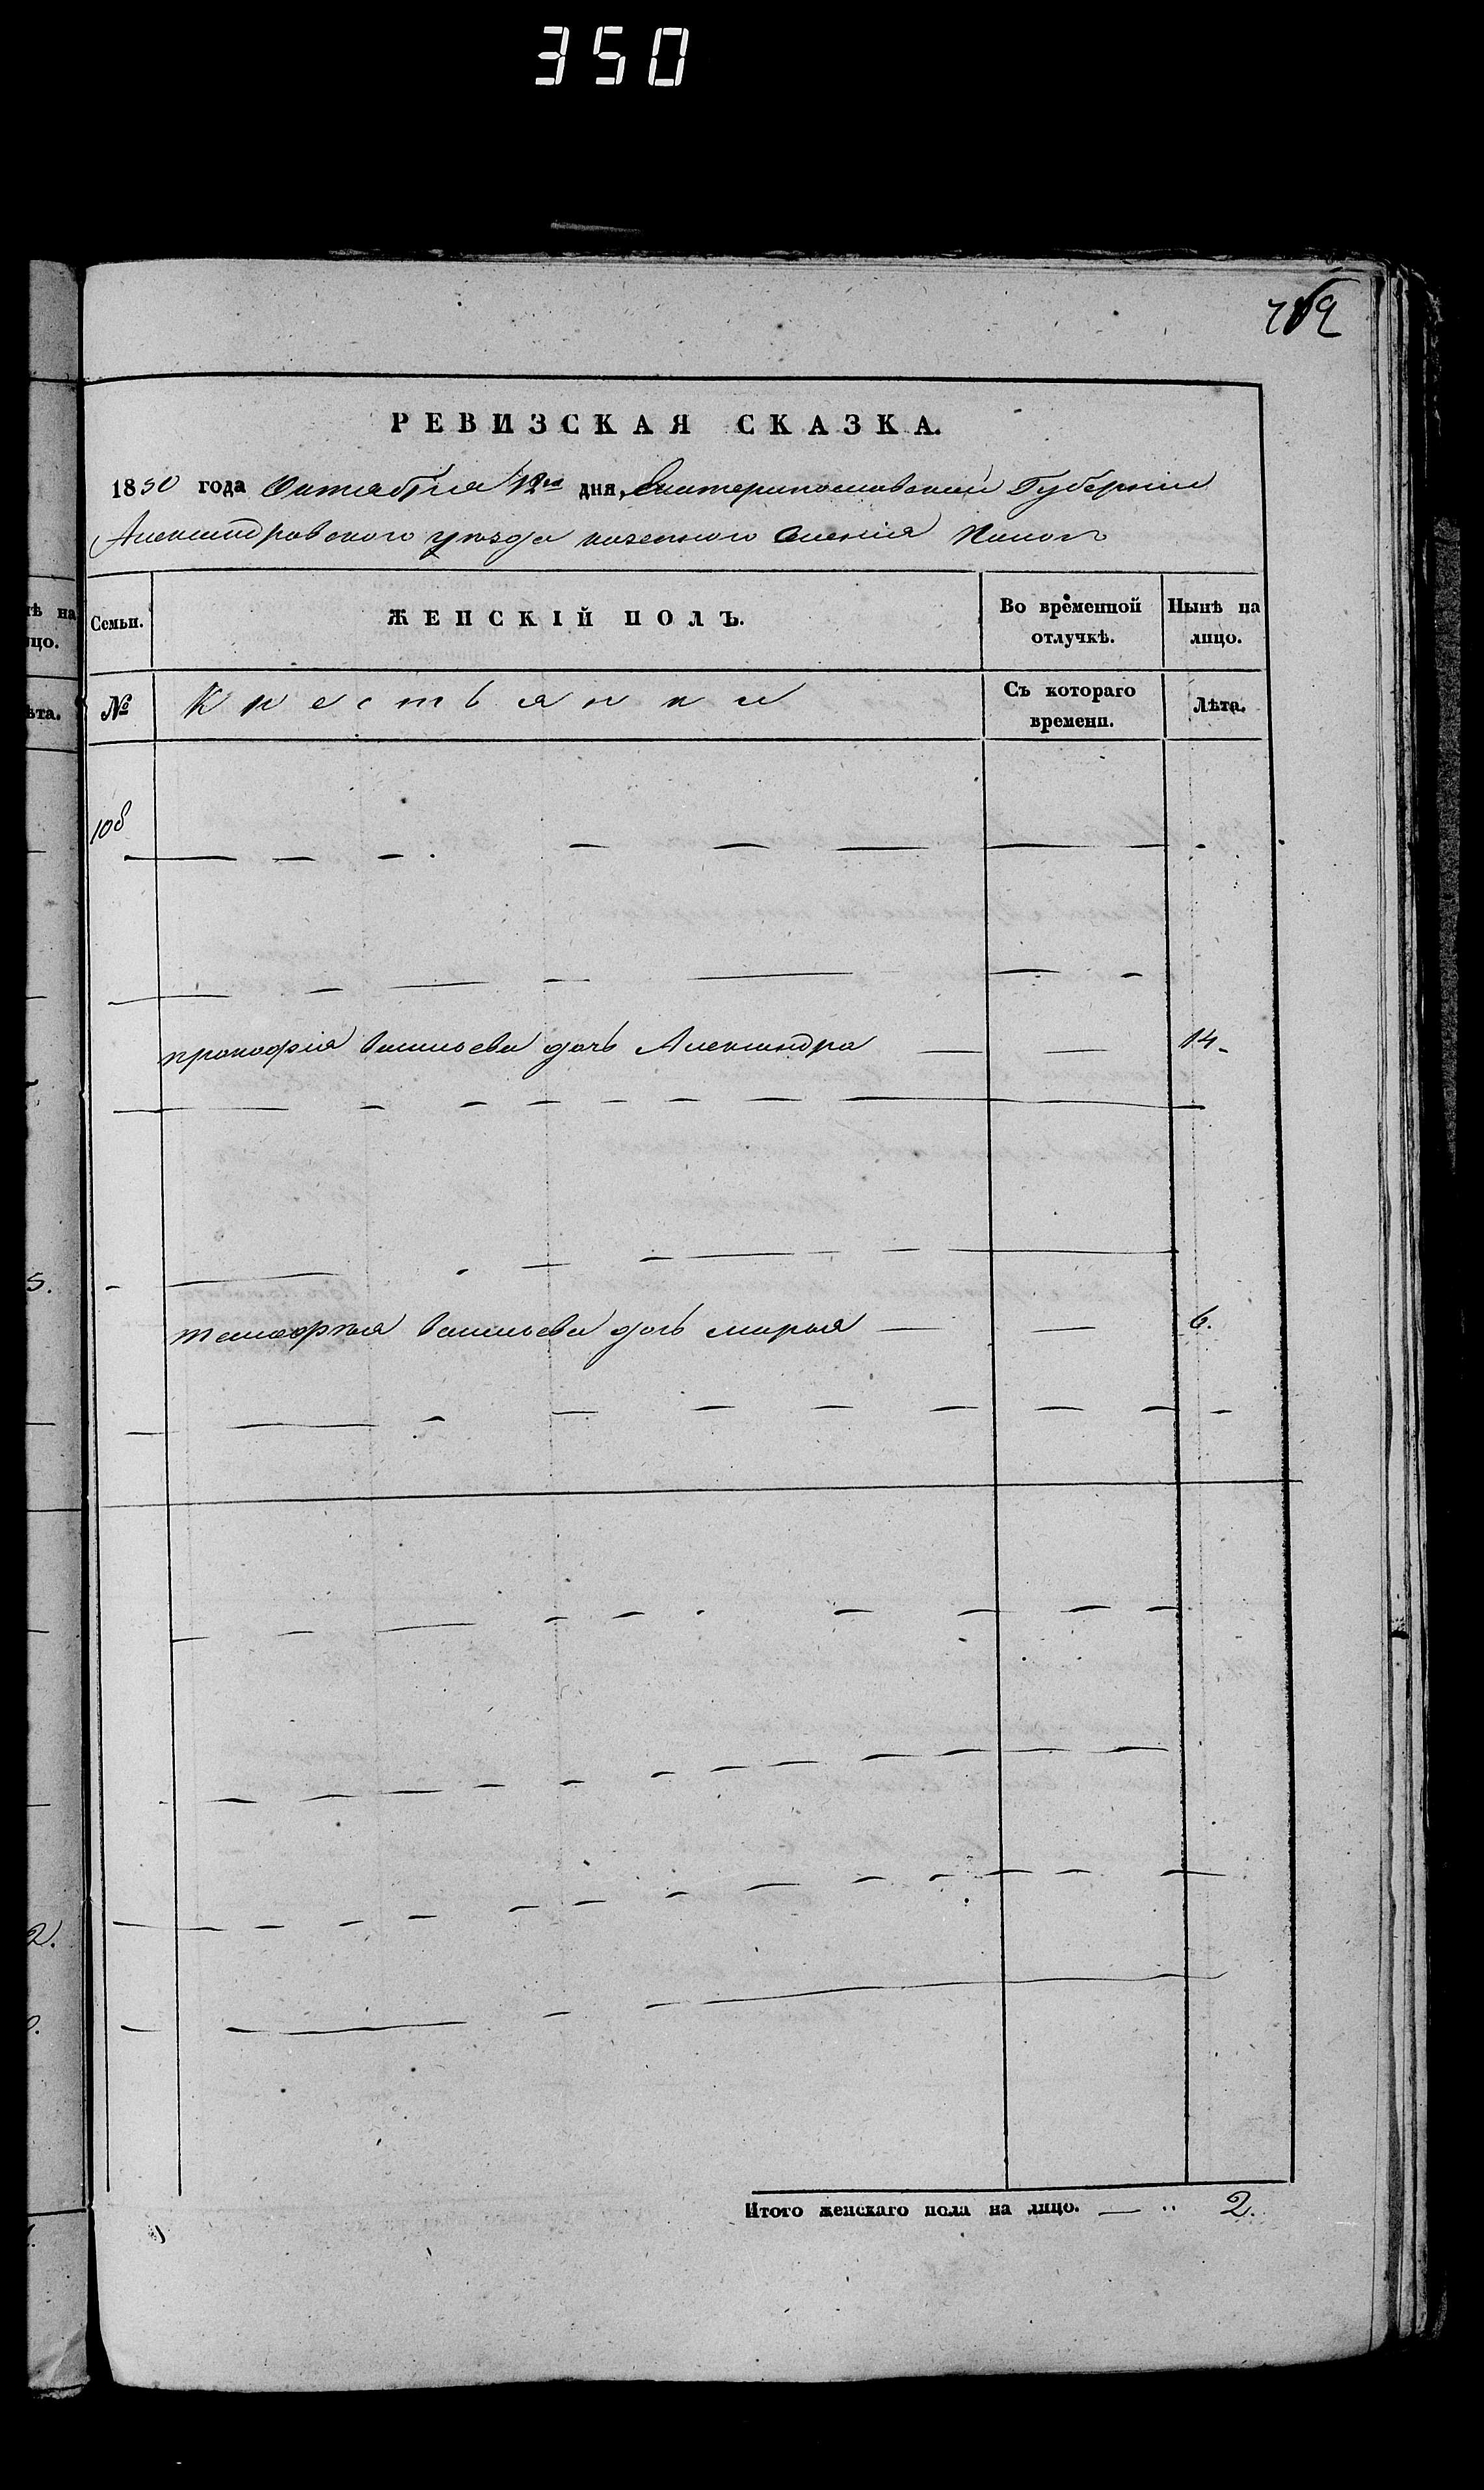 350
719
РЕВИЗСКАЯ СКАЗКА.
1850 года Октября 12го дня, Екатеринославской Губернии
Александровского уезда казенного селения Конот
Семьи.
ЖЕНСКІЙ ПОЛЪ.
Во временной отлучкѣ.
Нынѣ на лицо.
№
Крестьянки
Съ котораго времени.
Лѣта.
108
прокофия васильева дочь Александра — — 14-
тимофея васильева дочь марья — — 6.
Итого женскаго пола на лицо. — 2.